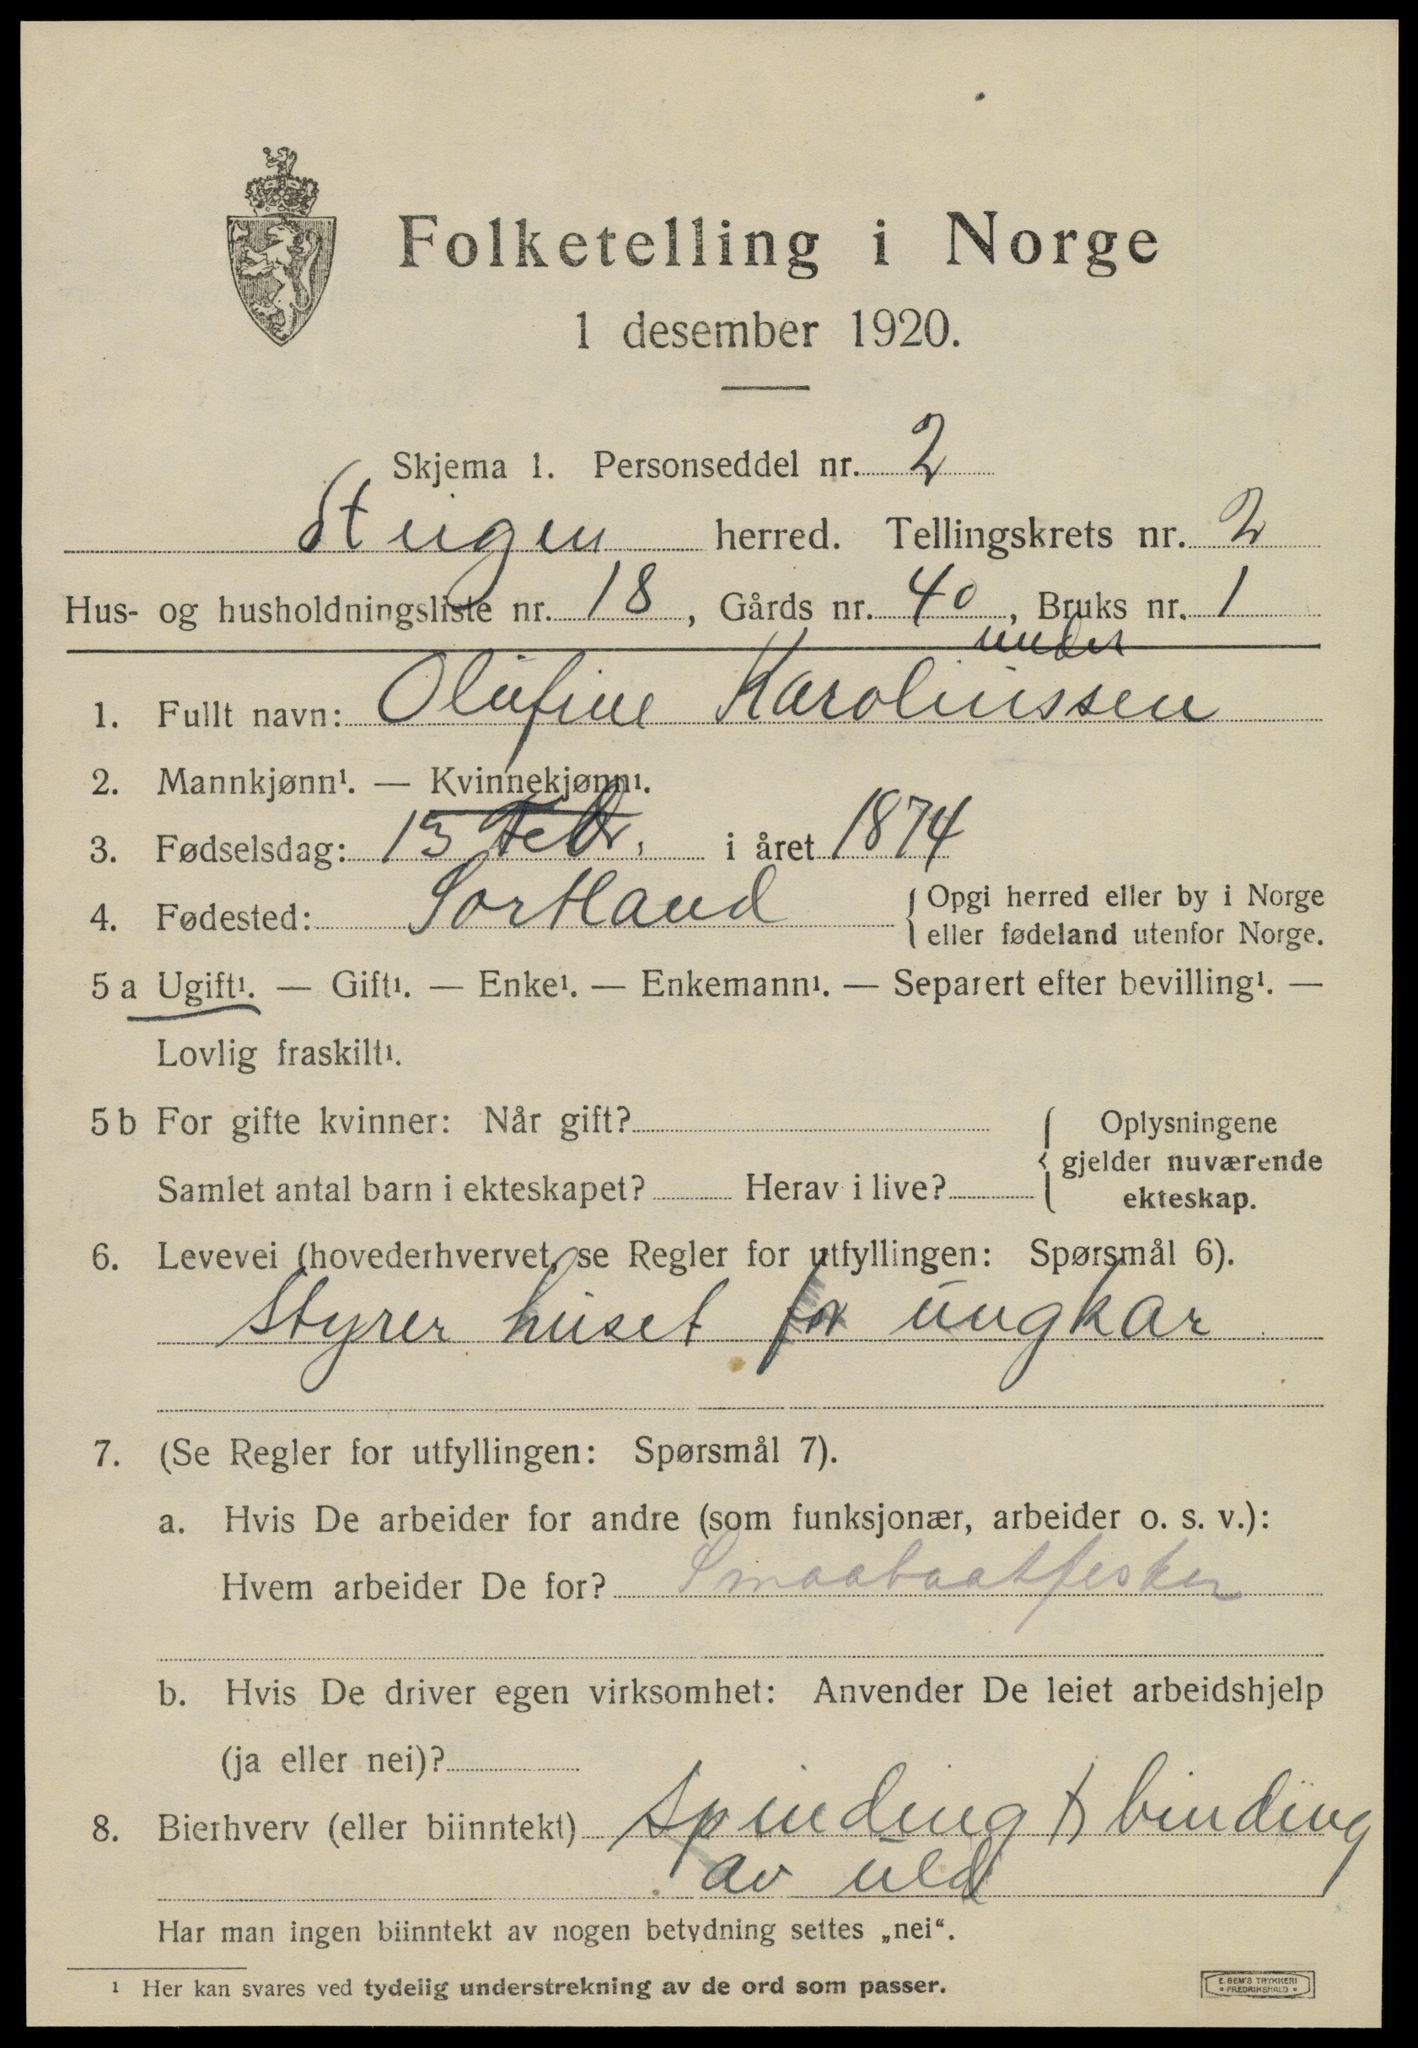 Folketelling i Norge
1 desember 1920.
Skjema 1. Personseddel nr. 2
Steigen herred. Tellingskrets nr. 2
Hus- og husholdningsliste nr. 18, Gårds nr. 40, Bruks nr. 1
under
1. Fullt navn: Olufine Karolinssen
2. Mannkjønn¹. — Kvinnekjønn¹.
3. Fødselsdag: 13 Febr. i året 1874
4. Fødested: Sortland { Opgi herred eller by i Norge
eller fødeland utenfor Norge.
5 a Ugift¹. — Gift¹. — Enke¹. — Enkemann¹. — Separert efter bevilling¹. —
Lovlig fraskilt¹.
5 b For gifte kvinner: Når gift? { Oplysningene
gjelder nuværende
Samlet antal barn i ekteskapet? Herav i live? ekteskap.
6. Levevei (hovederhvervet, se Regler for utfyllingen: Spørsmål 6).
Styrer huset for ungkar
7. (Se Regler for utfyllingen: Spørsmål 7).
a. Hvis De arbeider for andre (som funksjonær, arbeider o. s. v.):
Hvem arbeider De for? Smaabaatfisker
b. Hvis De driver egen virksomhet: Anvender De leiet arbeidshjelp
(ja eller nei)?
8. Bierhverv (eller biinntekt) Spinding & binding
av uld
Har man ingen biinntekt av nogen betydning settes „nei“.
¹ Her kan svares ved tydelig understrekning av de ord som passer.
E. SEM'S TRYKKERI
* FREDRIKSHALD *